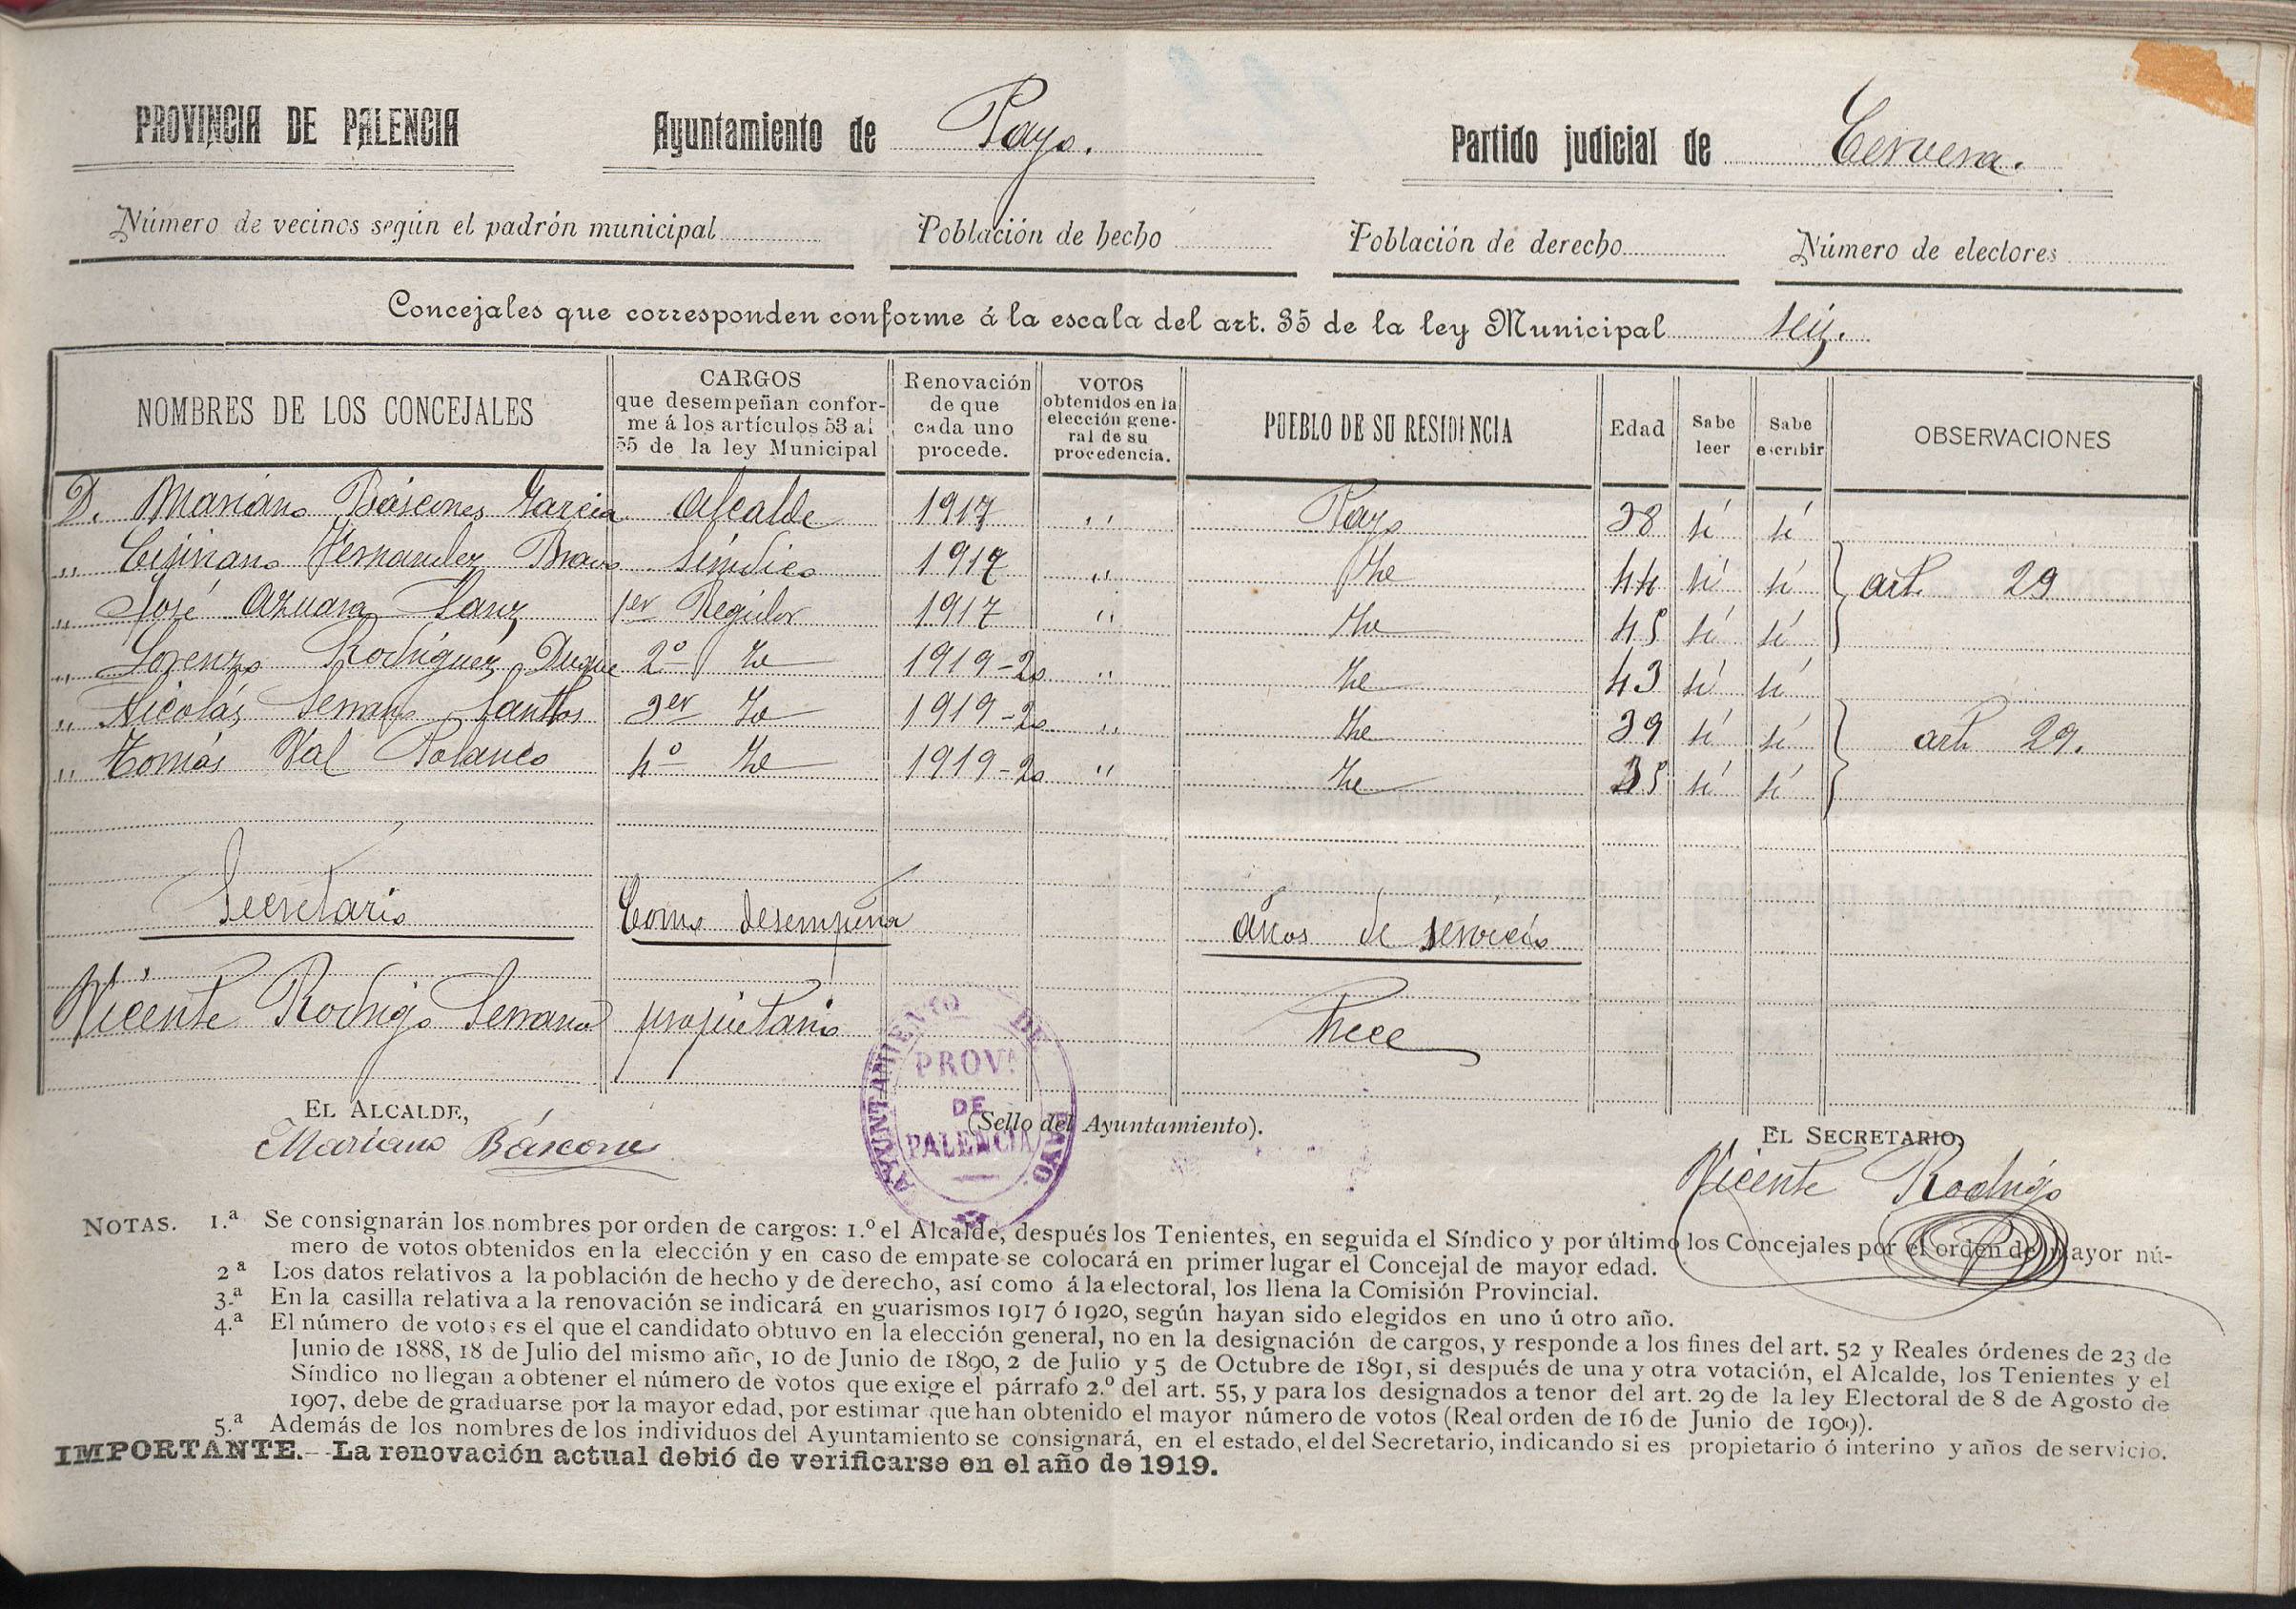 PROVINCIA DE PALENCIA Ayuntamiento de Payo. Partido judicial de Cervera.
Número de vecinos según el padrón municipal Población de hecho Población de derecho Número de electores
Concejales que corresponden conforme á la escala del art. 35 de la ley Municipal seis.
NOMBRES DE LOS CONCEJALES
CARGOS
que desempeñan confor-
me á los artículos 53 al
55 de la ley Municipal
Renovación
de que
cada uno
procede.
VOTOS
obtenidos en la
elección gene-
ral de su
procedencia.
PUEBLO DE SU RESIDENCIA
Edad
Sabe
leer
Sabe
escribir
OBSERVACIONES
D. Mariano Báscones Garcia Alcalde 1917 " Payo 38 sí sí
" Cipriano Fernandez Bravo Síndico 1917 " Ide 44 sí sí art. 29
" José Azuara Sanz 1er Regidor 1917 " Ide 45 sí sí
" Lorenzo Rodríguez Duque 2º Id 1919-20 " Ide 43 sí sí
" Nicolás Serrano Santos 3er Id 1919-20 " Ide 39 sí sí art. 29.
" Tomás Val Polanco 4º Id 1919-20 " Ide 35 sí sí
Secretario Como desempeña años de servicio
Vicente Rodrigo Serrano propietario Trece
EL ALCALDE,
Mariano Báscones
AYUNTAMIENTO DE PAYO.
PROV.
DE
PALENCIA
(Sello del Ayuntamiento).
EL SECRETARIO,
Vicente Rodrigo
NOTAS. 1.ª Se consignarán los nombres por orden de cargos: 1.º el Alcalde, después los Tenientes, en seguida el Síndico y por último los Concejales por el orden de mayor nú-
mero de votos obtenidos en la elección y en caso de empate se colocará en primer lugar el Concejal de mayor edad.
2ª Los datos relativos a la población de hecho y de derecho, así como á la electoral, los llena la Comisión Provincial.
3.ª En la casilla relativa a la renovación se indicará en guarismos 1917 ó 1920, según hayan sido elegidos en uno ú otro año.
4.ª El número de votos es el que el candidato obtuvo en la elección general, no en la designación de cargos, y responde a los fines del art. 52 y Reales órdenes de 23 de
Junio de 1888, 18 de Julio del mismo año, 10 de Junio de 1890, 2 de Julio y 5 de Octubre de 1891, si después de una y otra votación, el Alcalde, los Tenientes y el
Síndico no llegan a obtener el número de votos que exige el párrafo 2.º del art. 55, y para los designados a tenor del art. 29 de la ley Electoral de 8 de Agosto de
1907, debe de graduarse por la mayor edad, por estimar que han obtenido el mayor número de votos (Real orden de 16 de Junio de 1909).
5.ª Además de los nombres de los individuos del Ayuntamiento se consignará, en el estado, el del Secretario, indicando si es propietario ó interino y años de servicio.
IMPORTANTE.—La renovación actual debió de verificarse en el año de 1919.